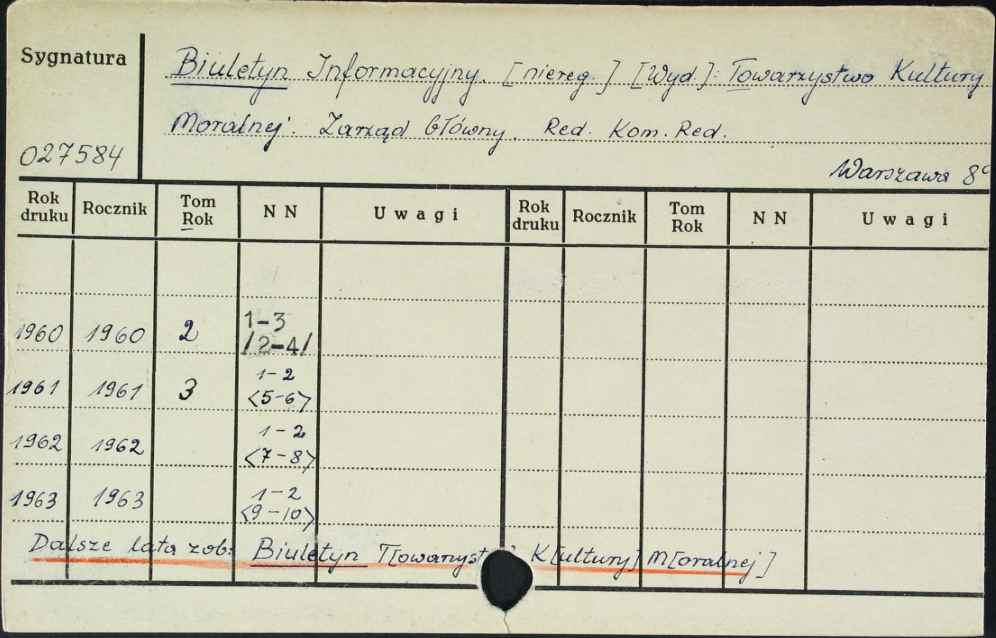 Sygnatura
Biuletyn Informacyjny. [niereg.] [Wyd]: Towarzystwo Kultury
Moralnej. Zarząd Główny. Red. Kom. Red.
027584
Warszawa 8°
Rok druku Rocznik Tom Rok N N Uwagi Rok druku Rocznik Tom Rok N N Uwagi
1960 1960 2 1-3
/2-4/
1961 1961 3 1-2
<5-6>
1962 1962 1-2
<7-8>
1963 1963 1-2
<9-10>
Dalsze lata zob: Biuletyn K[ultury] M[oralnej]